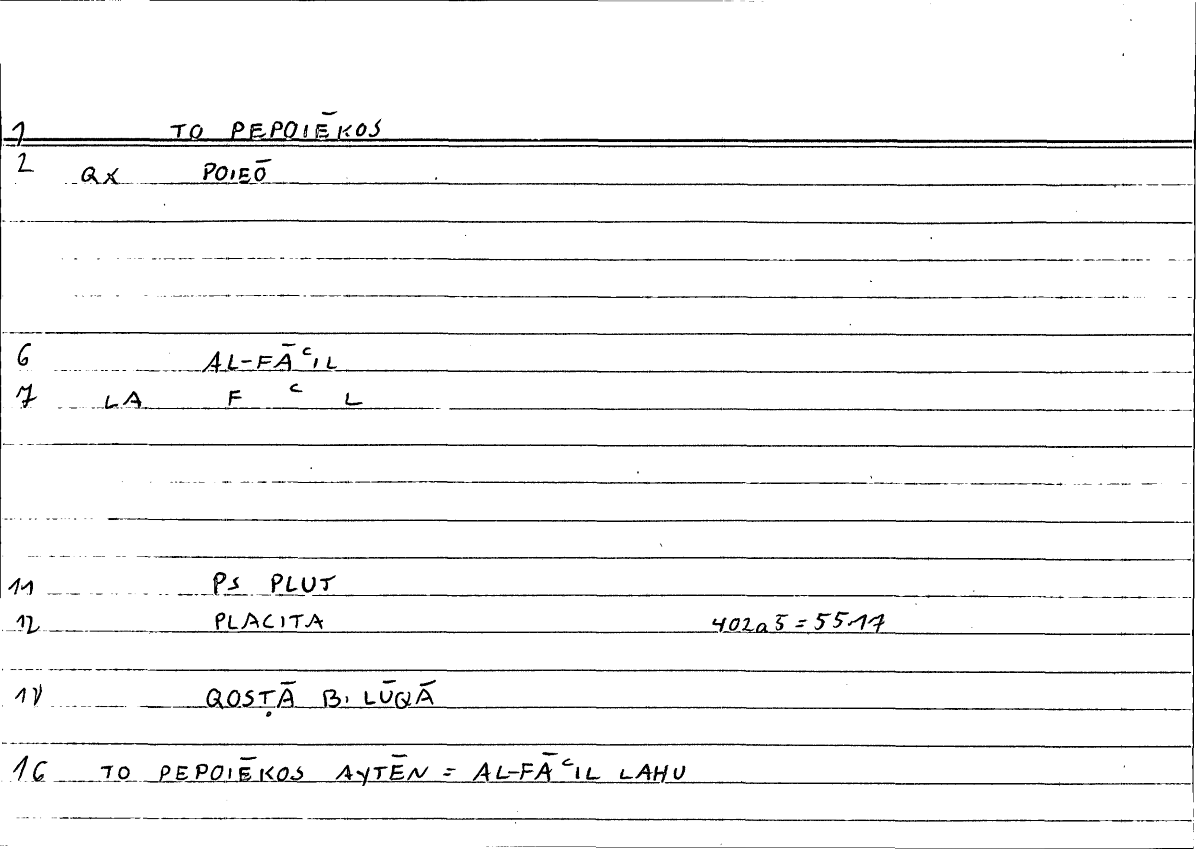 1 TO PEPOIĒKOS
2 QX POIEŌ
6 AL-FĀʿIL
7 LA F ʿ L
11 PS PLUT
12 PLACITA 402a5 = 55.17
14 QOSṬĀ B. LŪQĀ
16 TO PEPOIĒKOS AYTĒN = AL-FĀʿIL LAHU